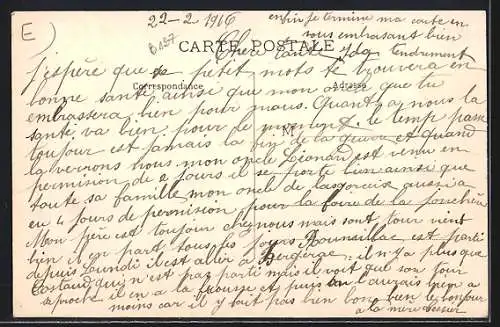 E
22-2 1916
enfin je termine ma carte en
vous embrasant bien
6137
CARTE POSTALE
tendrement
Chère tante Ida
j'espère que se petit mots te trouvera en
Correspondance
Adresse
bonne santé ainsi que mon oncle que tu
embrassera bien pour nous. Quant a nous la
santé va bien pour le moment. le temp passe
M
toujour est jamais la fin de la guerre et quand
la verrons nous mon oncle Léonard est venu en
permision de 2 jours il se porte bien ainsi que
toute sa famille mon oncle de aussi a
eu 4 jours de permision pour la foire de la
Mon père est toujour chez nous mais sont tour vient
bien il en part tous les jours est parti
depuis Lundi il est aller à il n'y a plus que
qui n'est pas parti mais il voit que son jour
s'aproche il en a la frousse et puis l'autre
moins car il y fait pas bien bon bien le bonjour
a la mère